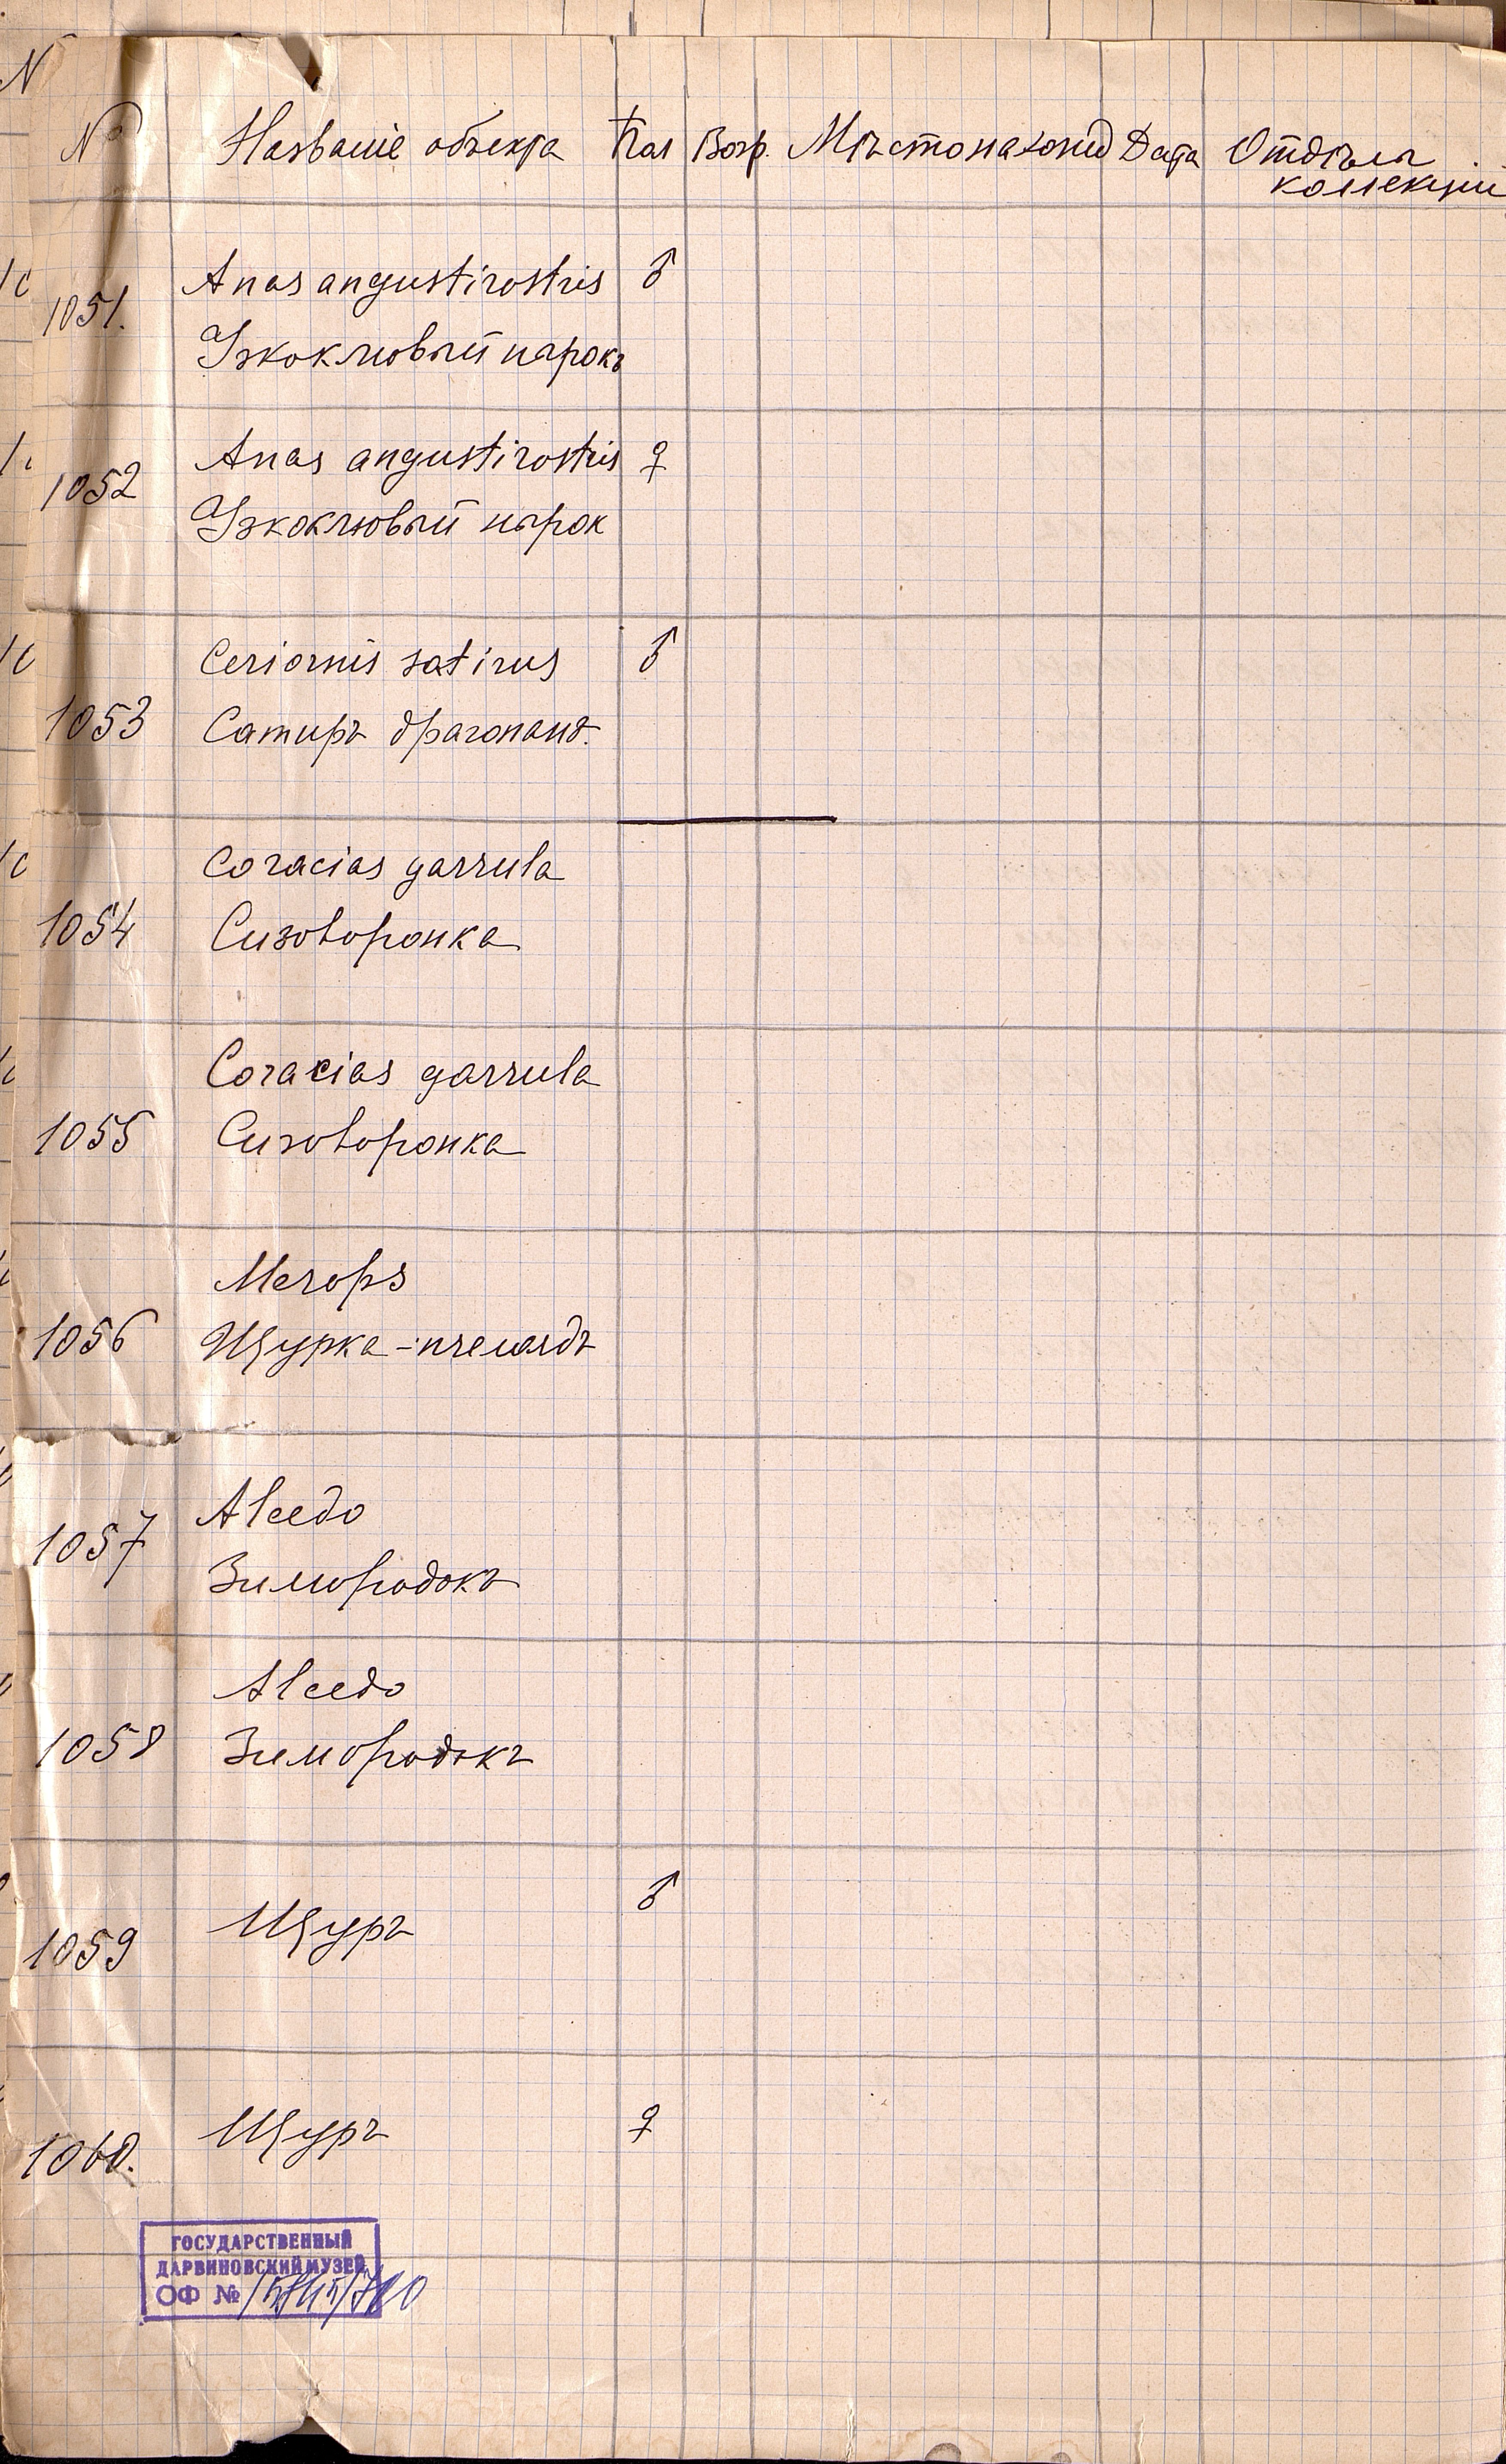 № Названіе объекта Пол Возр. Мѣстонахожд Дата Отдѣлы
коллекціи
Anas angustirostris ♂
1051.
Узкоклювый нырокъ
Anas angustirostris ♀
1052
Узкоклювый нырок
Ceriornis satirus ♂
1053 Сатиръ драгопанъ.
Coracias garrula
1054 Сизоворонка
Coracias garrula
1055 Сизоворонка
Merops
1056 Щурка-пчелоядъ
Alcedo
1057
Зимородокъ
Alcedo
1058 Зимородокъ
♂
Щуръ
1059
Щуръ ♀
1060.
ГОСУДАРСТВЕННЫЙ
ДАРВИНОВСКИЙ МУЗЕЙ
ОФ №